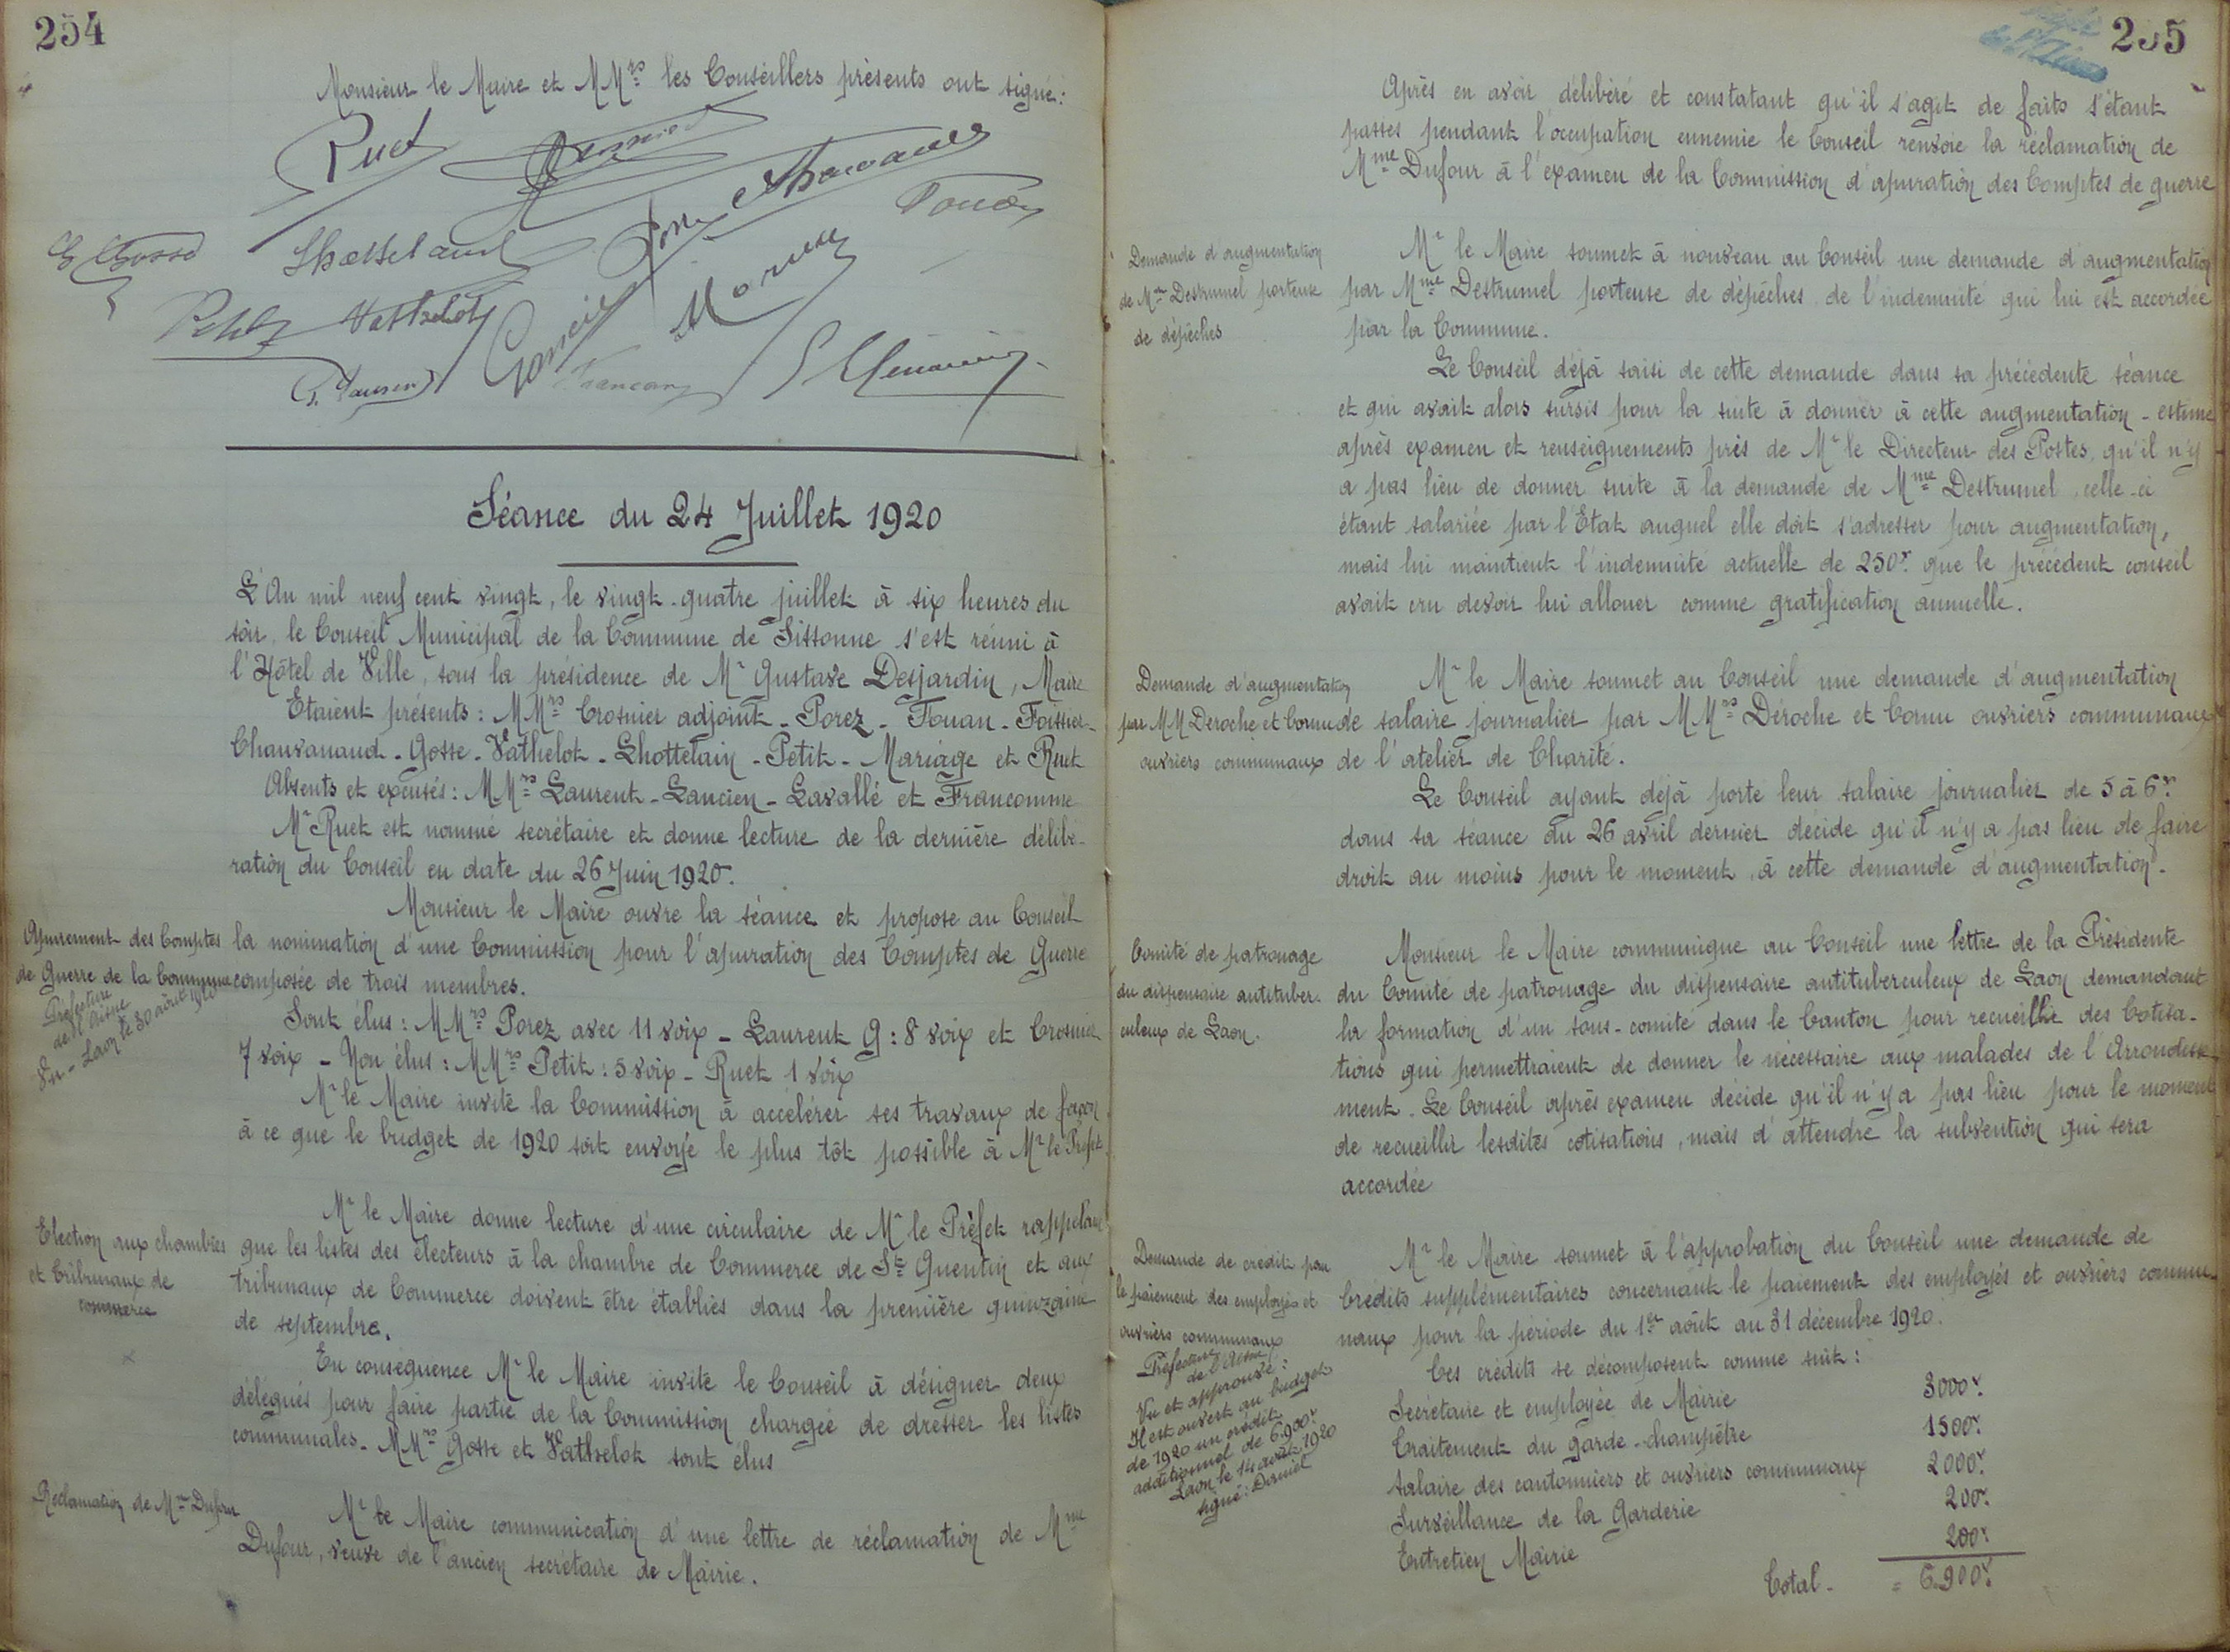 254
Monsieur le Maire et MMrs les Conseillers présents ont signé:
Ruet
Gosse
Petit Vathelot
Séance du 24 Juillet 1920
L'An mil neuf cent vingt, le vingt-quatre juillet à six heures du
soir, le Conseil Municipal de la Commune de Sissonne s'est réuni à
l'Hôtel de Ville, sous la présidence de Mr Gustave Desjardin, Maire
Etaient présents: MMrs Crosnier adjoint - Porez - Fouan - Fossier -
Chauvanaud - Gosse - Vathelot - Lhottelain - Petit - Mariage et Ruet
Absents et excusés: MMrs Laurent - Lancien - Lavallé et Francomme
Mr Ruet est nommé secrétaire et donne lecture de la dernière délibé-
ration du Conseil en date du 26 Juin 1920.
Monsieur le Maire ouvre la séance et propose au Conseil
Apurement des Comptes
de Guerre de la Commune
Préfecture
de l'Aisne
Vu - Laon le 30 août 1920
la nomination d'une Commission pour l'apuration des Comptes de Guerre
composée de trois membres.
Sont élus: MMrs Porez avec 11 voix - Laurent G: 8 voix et Crosnier
7 voix - Non élus: MMrs Petit: 5 voix - Ruet 1 voix
Mr le Maire invite la Commission à accélérer ses travaux de façon
à ce que le budget de 1920 soit envoyé le plus tôt possible à Mr le Préfet.
Election aux chambres
et tribunaux de
commerce
Mr le Maire donne lecture d'une circulaire de Mr le Préfet rappelant
que les listes des électeurs à la chambre de Commerce de St Quentin et aux
tribunaux de Commerce doivent être établies dans la première quinzaine
de septembre.
En conséquence Mr le Maire invite le Conseil à désigner deux
délégués pour faire partie de la Commission chargée de dresser les listes
communales. MMrs Gosse et Vathelot sont élus
Réclamation de Mme Dufour
Mr le Maire communication d'une lettre de réclamation de Mme
Dufour, veuve de l'ancien secrétaire de Mairie.
235
Après en avoir délibéré et constatant qu'il s'agit de faits s'étant
passés pendant l'occupation ennemie le Conseil renvoie la réclamation de
Mme Dufour à l'examen de la Commission d'apuration des Comptes de guerre
Demande d'augmentation
de Mme Destrumel porteuse
de dépêches
Mr le Maire soumet à nouveau au Conseil une demande d'augmentation
par Mme Destrumel porteuse de dépêches de l'indemnité qui lui est accordée
par la Commune.
Le Conseil déjà saisi de cette demande dans sa précédente séance
et qui avait alors sursis pour la suite à donner à cette augmentation - estime
après examen et renseignements près de Mr le Directeur des Postes, qu'il n'y
a pas lieu de donner suite à la demande de Mme Destrumel, celle-ci
étant salariée par l'Etat auquel elle doit s'adresser pour augmentation,
mais lui maintient l'indemnité actuelle de 250f que le précédent conseil
avait cru devoir lui allouer comme gratification annuelle.
Demande d'augmentation
par MM Deroche et Cornu
ouvriers communaux
Mr le Maire soumet au Conseil une demande d'augmentation
de salaire journalier par MMrs Déroche et Cornu ouvriers communaux
de l'atelier de Charité.
Le Conseil ayant déjà porté leur salaire journalier de 5 à 6f
dans sa séance du 26 avril dernier décide qu'il n'y a pas lieu de faire
droit au moins pour le moment, à cette demande d'augmentation.
Comité de patronage
du dispensaire antituber-
culeux de Laon.
Monsieur le Maire communique au Conseil une lettre de la Présidente
du Comité de patronage du dispensaire antituberculeux de Laon demandant
la formation d'un sous-comité dans le Canton pour recueillir des Cotisa-
tions qui permettraient de donner le nécessaire aux malades de l'Arrondisse-
ment. Le Conseil après examen décide qu'il n'y a pas lieu pour le moment
de recueillir lesdites cotisations, mais d'attendre la subvention qui sera
accordée
Demande de crédits pour
le paiement des employés et
ouvriers communaux
Préfecture
de l'Aisne
Vu et approuvé:
Il est ouvert au budget
de 1920 un crédit
additionnel de 6.900f
Laon le 14 août 1920
signé: Daniel
Mr le Maire soumet à l'approbation du Conseil une demande de
Crédits supplémentaires concernant le paiement des employés et ouvriers commu-
naux pour la période du 1er août au 31 décembre 1920.
Ces crédits se décomposent comme suit:
Secrétaire et employée de Mairie 3000f
Traitement du garde-champêtre 1500f
Salaire des cantonniers et ouvriers communaux 2000f
Surveillance de la Garderie 200f
Entretien Mairie 200f
Total - = 6.900f